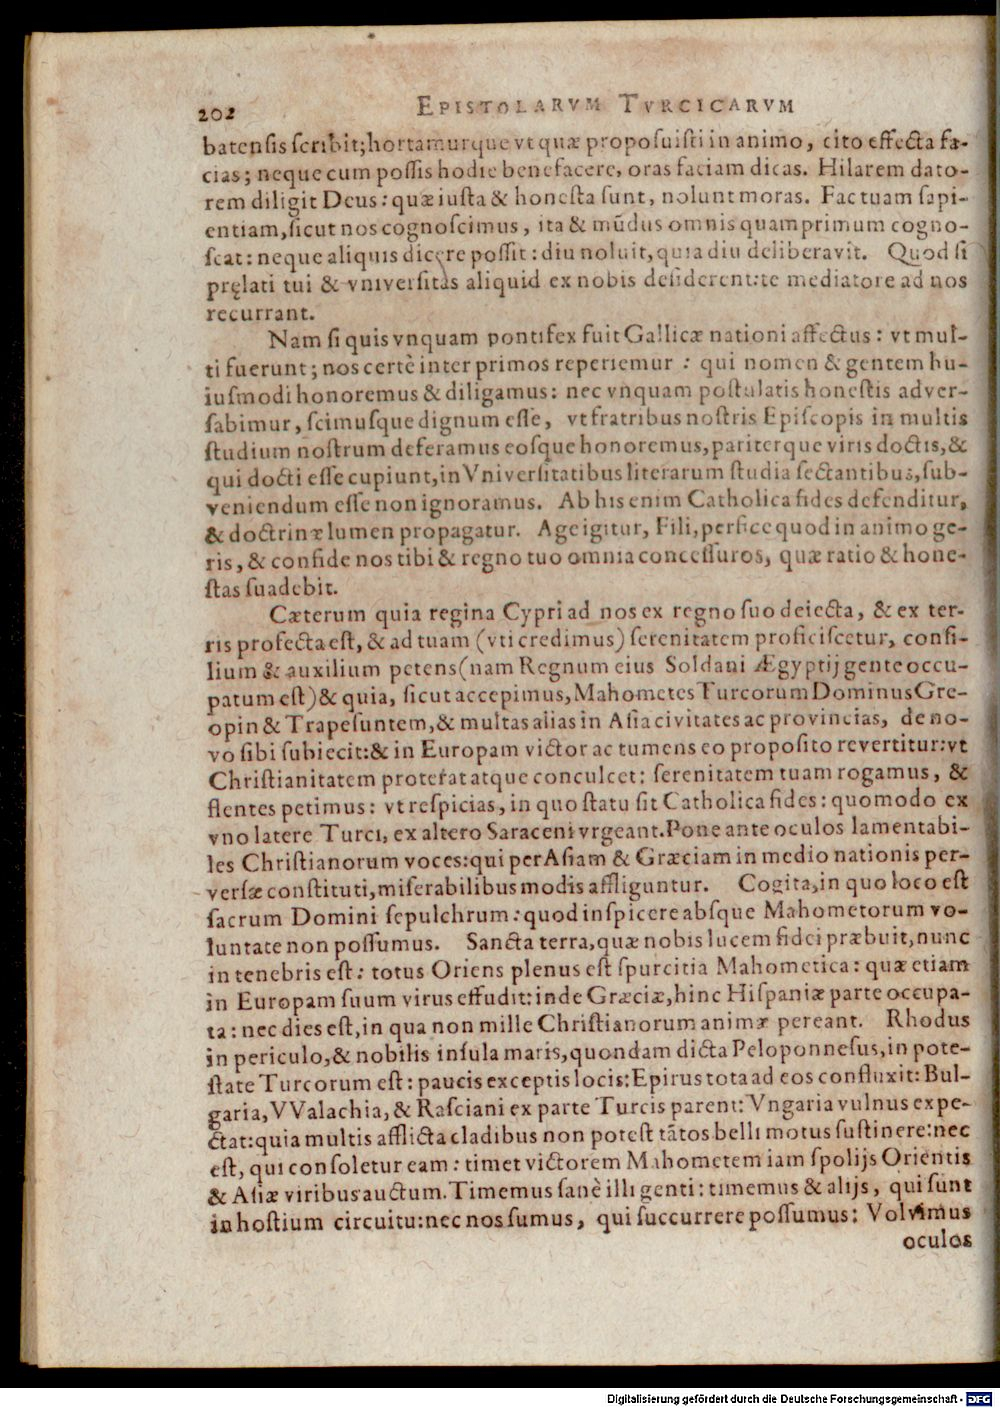 202 EPISTOLARVM TVRCICARVM
batensis scribit; hortamurque vt quæ proposuisti in animo, cito effecta fa-
cias; neque cum possis hodie benefacere, cras faciam dicas. Hilarem dato-
rem diligit Deus: quæ iusta & honesta sunt, nolunt moras. Fac tuam sapi-
entiam, sicut nos cognoscimus, ita & mũdus omnis quamprimum cogno-
scat: neque aliquis dicere possit: diu noluit, quia diu deliberavit. Quod si
pręlati tui & vniversitas aliquid ex nobis desiderent: te mediatore ad nos
recurrant.
Nam si quis vnquam pontifex fuit Gallicæ nationi affectus: vt mul-
ti fuerunt; nos certè inter primos reperiemur: qui nomen & gentem hu-
iusmodi honoremus & diligamus: nec vnquam postulatis honestis adver-
sabimur, scimusque dignum esse, vt fratribus nostris Episcopis in multis
studium nostrum deferamus eosque honoremus, pariterque viris doctis, &
qui docti esse cupiunt, in Vniversitatibus literarum studia sectantibus, sub-
veniendum esse non ignoramus. Ab his enim Catholica fides defenditur,
& doctrinæ lumen propagatur. Age igitur, Fili, perfice quod in animo ge-
ris, & confide nos tibi & regno tuo omnia concessuros, quæ ratio & hone-
stas suadebit.
Cæterum quia regina Cypri ad nos ex regno suo deiecta, & ex ter-
ris profecta est, & ad tuam (vti credimus) serenitatem proficiscetur, consi-
lium & auxilium petens (nam Regnum eius Soldani Ægyptij gente occu-
patum est) & quia, sicut accepimus, Mahometes Turcorum Dominus Gre-
opin & Trapesuntem, & multas alias in Asia civitates ac provincias, de no-
vo sibi subiecit: & in Europam victor ac tumens eo proposito revertitur: vt
Christianitatem proterat atque conculcet: serenitatem tuam rogamus, &
flentes petimus: vt respicias, in quo statu sit Catholica fides: quomodo ex
vno latere Turci, ex altero Saraceni vrgeant. Pone ante oculos lamentabi-
les Christianorum voces: qui per Asiam & Græciam in medio nationis per-
versæ constituti, miserabilibus modis affliguntur. Cogita, in quo loco est
sacrum Domini sepulchrum: quod inspicere absque Mahometorum vo-
luntate non possumus. Sancta terra, quæ nobis lucem fidei præbuit, nunc
in tenebris est: totus Oriens plenus est spurcitia Mahometica: quæ etiam
in Europam suum virus effudit: inde Græciæ, hinc Hispaniæ parte occupa-
ta: nec dies est, in qua non mille Christianorum animæ pereant. Rhodus
in periculo, & nobilis insula maris, quondam dicta Peloponnesus, in pote-
state Turcorum est: paucis exceptis locis: Epirus tota ad eos confluxit: Bul-
garia, VValachia, & Rasciani ex parte Turcis parent: Vngaria vulnus expe-
ctat: quia multis afflicta cladibus non potest tãtos belli motus sustinere: nec
est, qui consoletur eam: timet victorem Mahometem iam spolijs Orientis
& Asiæ viribus auctum. Timemus sanè illi genti: timemus & alijs, qui sunt
in hostium circuitu: nec nos sumus, qui succurrere possumus: Volvimus
oculos
Digitalisierung gefördert durch die Deutsche Forschungsgemeinschaft - DFG